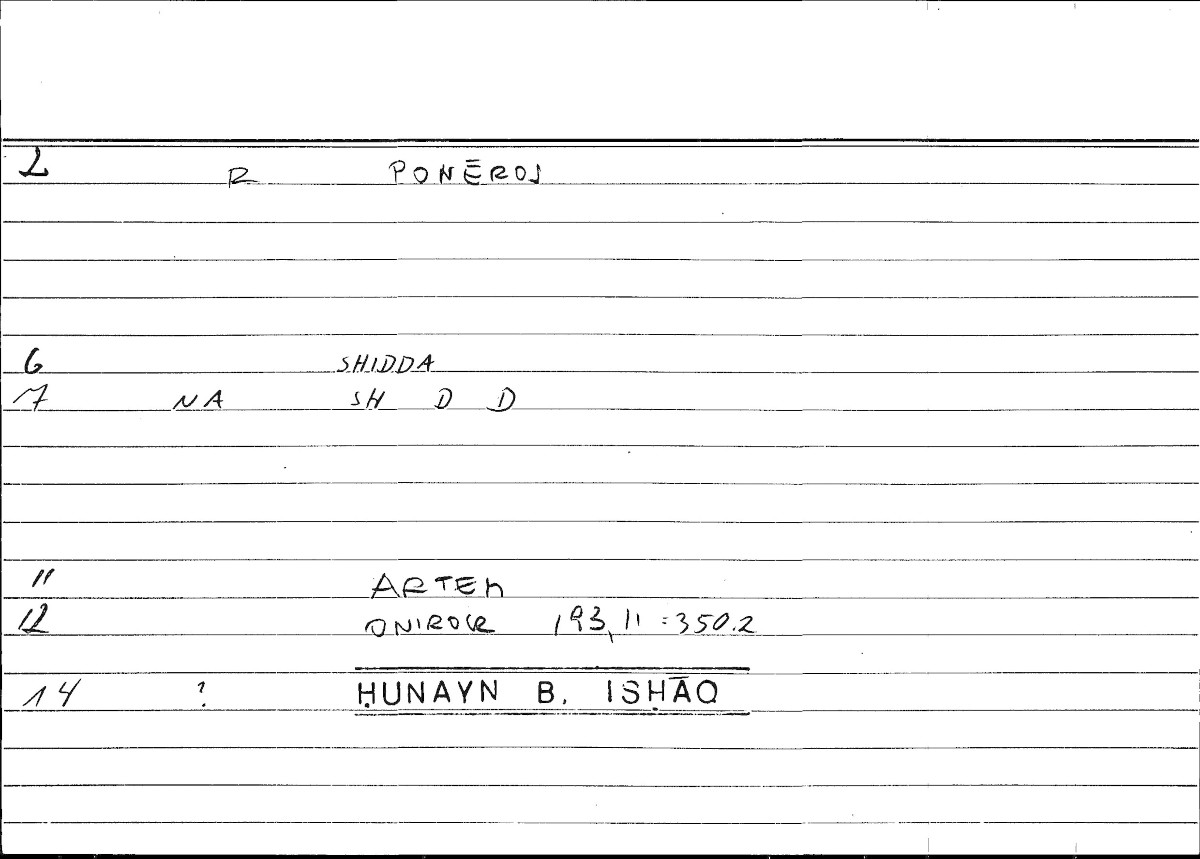 2 R PONĒROS
6 SHIDDA
7 NA SH D D
11 ARTEM
12 ONIROCR 193,11 : 350.2
14 ? ḤUNAYN B. ISḤĀQ